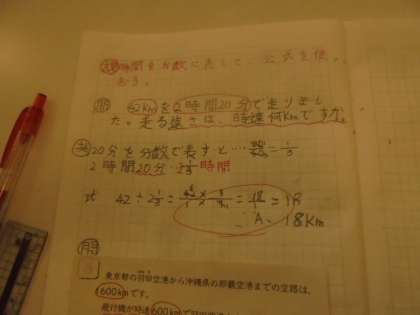 時間を分数に表して、公式を使
おう。
問 42kmを2時間20分で走りまし
た。走る速さは、時速何Kmですか。
20分を分数で表すと…20/60=1/3
2時間20分…2 1/3時間
式 42÷2 1/3=42/1×3/7=18/1=18
A. 18Km
問
東京都の羽田空港から沖縄県の那覇空港までの空路は、
1600kmです。
飛行機が時速